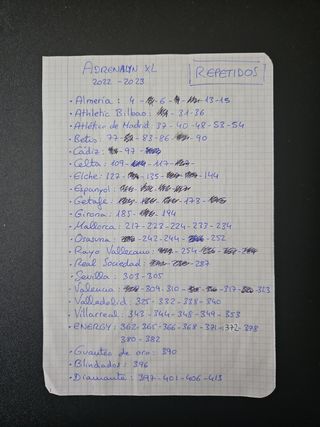 ADRENALYN XL
2022-2023
REPETIDOS
• Almería: 4 - 6 - 13-15
• Athletic Bilbao: 31-36
• Atlético de Madrid: 37-40-48-53-54
• Betis: 77 - 83-86 - 90
• Cádiz: 97
• Celta: 109 - 117
• Elche: 127 - 135 - 144
• Espanyol:
• Getafe: 173
• Girona: 185 - 194
• Mallorca: 217-223-224-233-234
• Osasuna: 242-244 - 252
• Rayo Vallecano: 254
• Real Sociedad: 287
• Sevilla: 303-305
• Valencia: 309-310 - 317 - 323
• Valladolid: 325-332-338-340
• Villarreal: 343-344-348-349-353
• ENERGY: 362-365-366-368-371-372-378
380-382
• Guantes de oro: 390
• Blindados: 396
• Diamante: 397-401-406-413